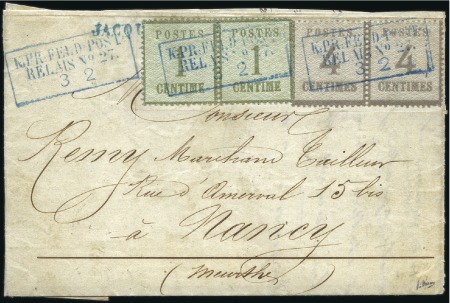 JACQU
K.PR.FELD-POST
RELAIS No 27.
3 2
POSTES
1
CENTIME
POSTES
1
CENTIME
POSTES
4
CENTIMES
POSTES
4
CENTIMES
K.PR.FELD
RELA
2
K.PR.FE
RELAI
3 2
Monsieur
Remy Marchand Tailleur
Rue d'Amerval 15 bis
à
Nancy
(Meurthe)